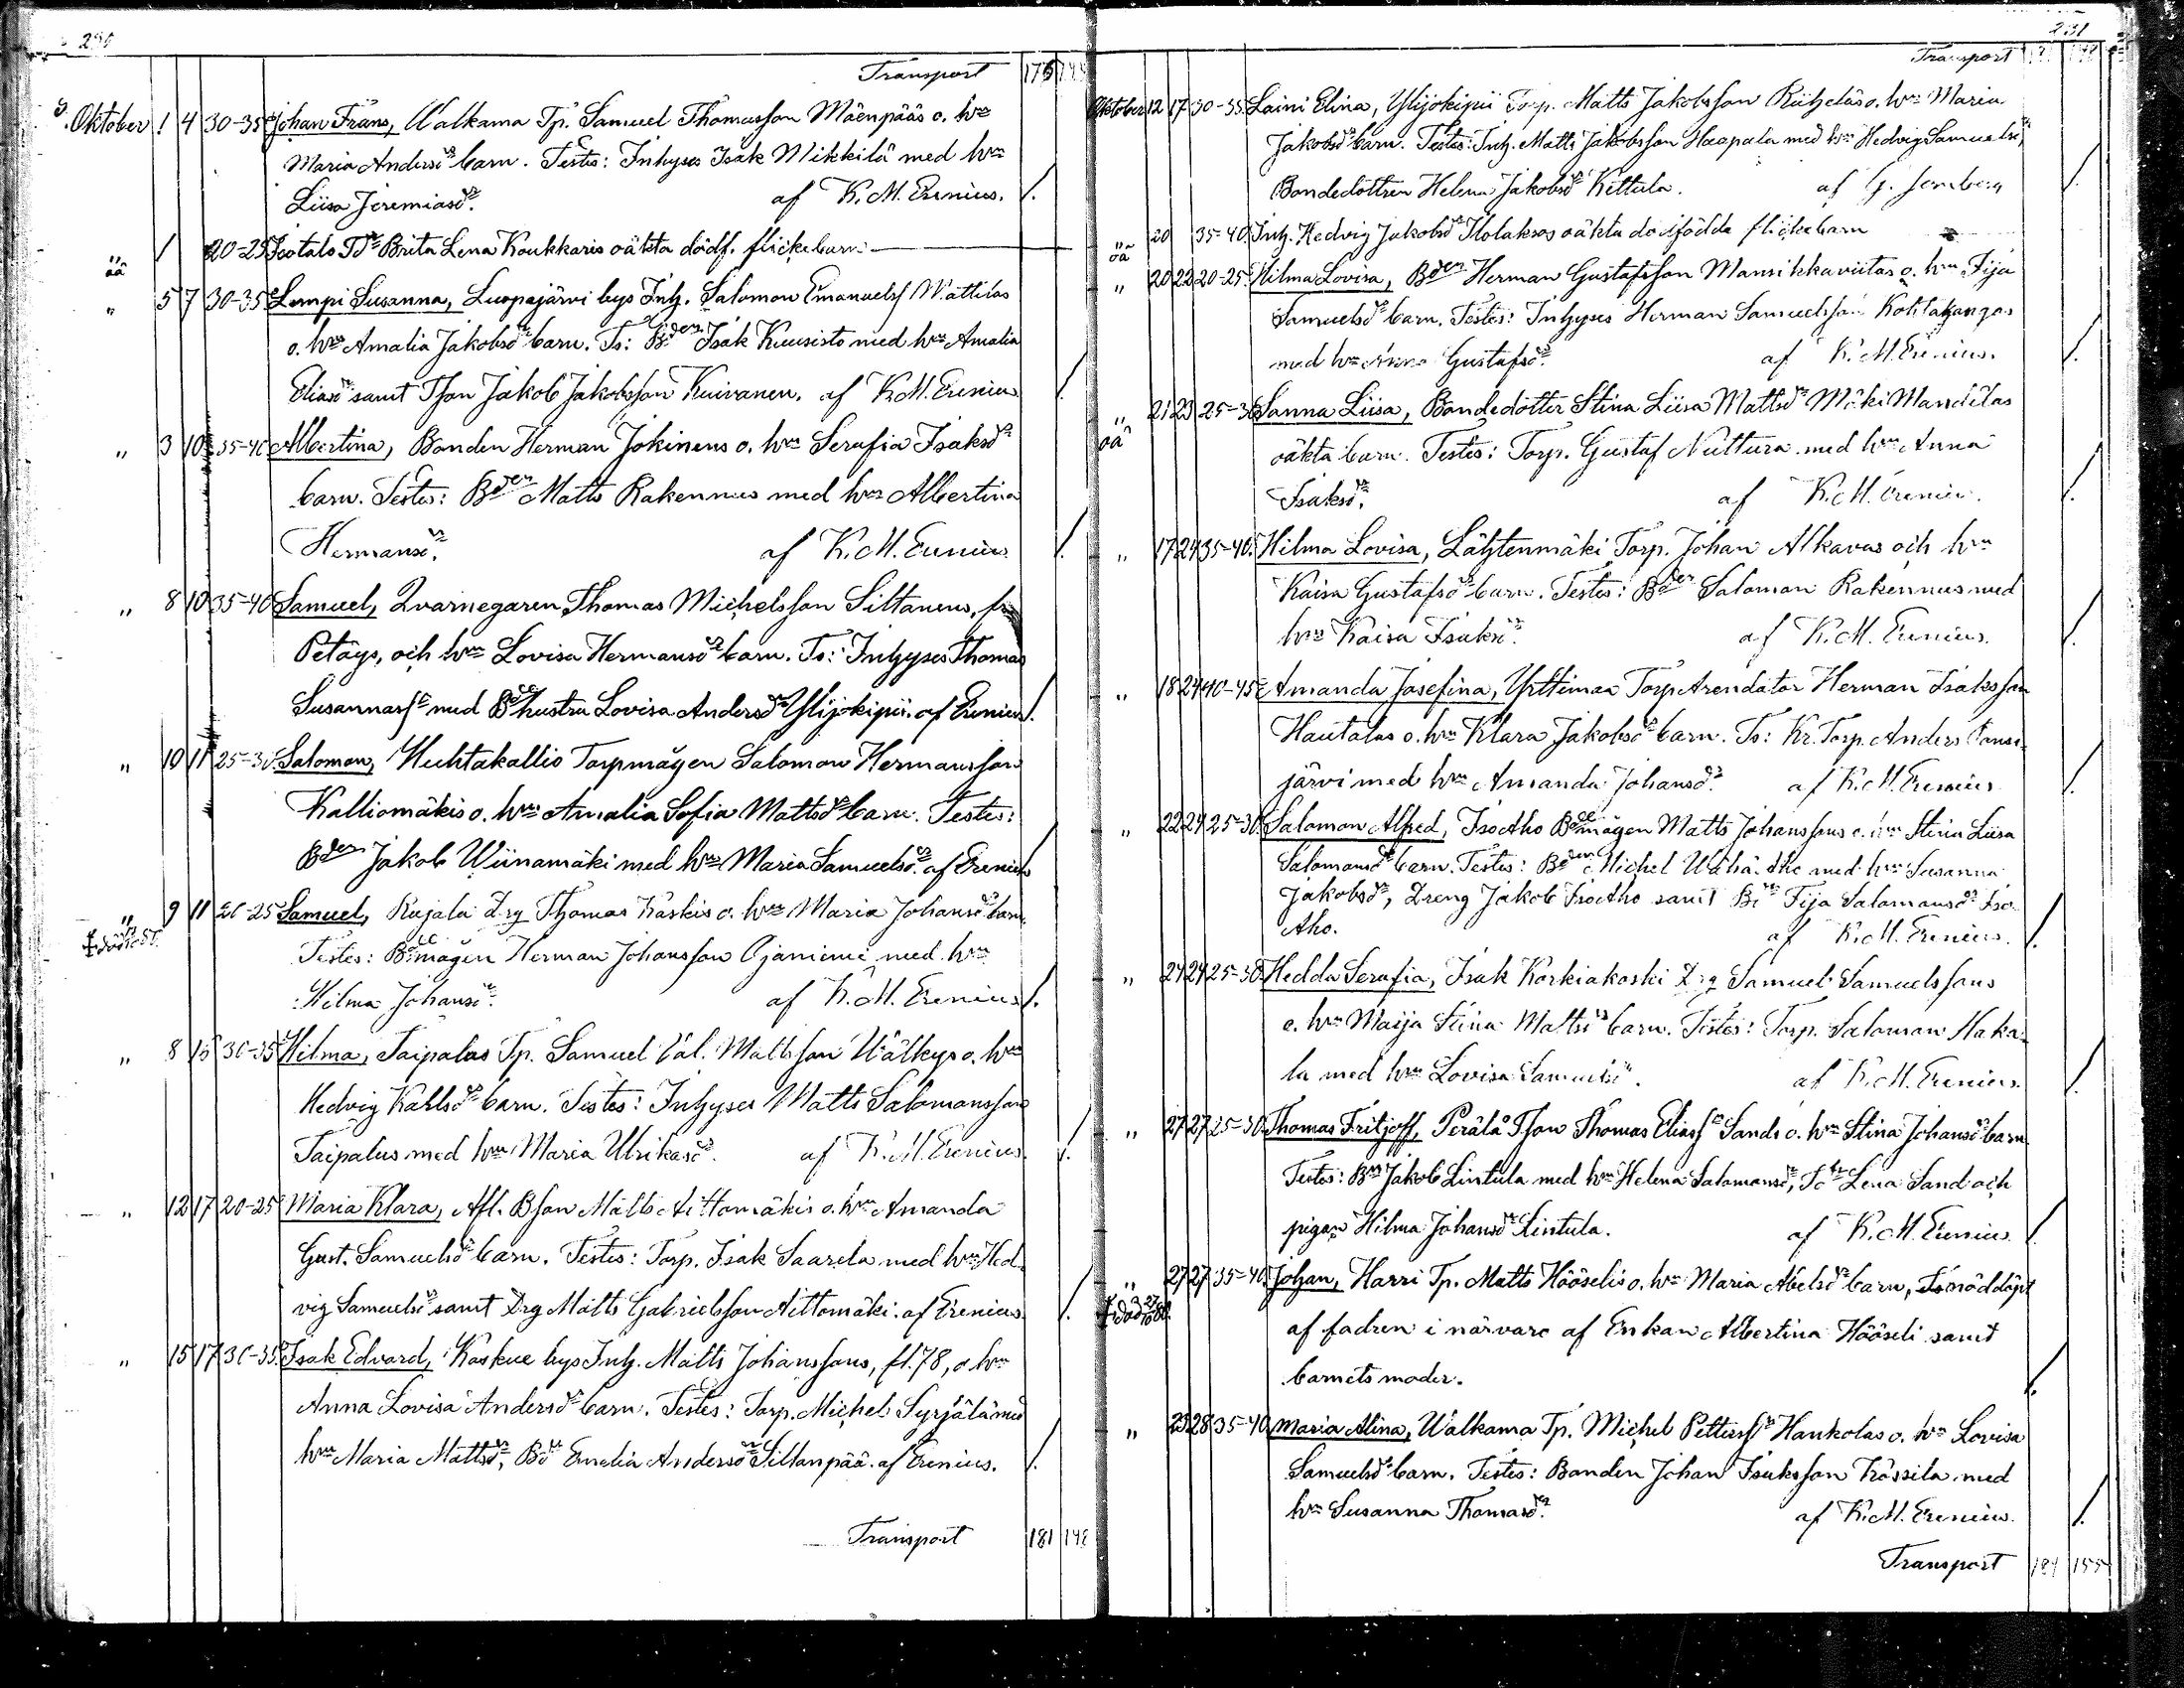 Transport 175
Oktober 1 4 30-35 Johan Frans, Walkama Tp. Samuel Thomasson Mäenpääs o. hrn
Maria Andersdr barn. Testes: Inhyses Isak Mikkilä med hrn
Liisa Jeremiasdr. af K. M. Erenius. /.
oä / 20-25 Isotalo Tdr Brita Lena Koukkaris oäkta dödf. flickebarn
" 5 7 30-35 Lempi Susanna, Luopajärvi bys Inh. Salomon Emanuelss Mattilas
o. hrn Amalia Jakobsdr barn. Ts: Bden Isak Kuusisto med hrn Amalia
Eliasdr samt Tson Jakob Jakobsson Kuivanen. af K. M. Erenius /
" 3 10 35-40 Albertina, Bonden Herman Jokinens o. hrn Serafia Isaksdr
barn. Testes: Bden Matts Rakennus med hrn Albertina
Hermansdr. af K. M. Erenius /.
" 8 10 35-40 Samuel, Qvarnegaren Thomas Michelsson Siltanens, fr
Petäys, och hrn Lovisa Hermansdr barn. Ts: Inhyses Thomas
Susannass med Bdehustru Lovisa Andersdr Ylijokipii. af Erenius /.
" 10 11 25-30 Salomon, Huhtakallio Torpmågen Salomon Hermansson
Kalliomäkis o. hrn Amalia Sofia Mattsdr barn. Testes:
Bden Jakob Wiinamäki med hrn Maria Samuelsdr. af Erenius /
" 9 11 20-25 Samuel, Rajala Drg Thomas Käskis o. hrn Maria Johansdr barn
Testes: Bdemågen Herman Johansson Ojaniemi med hrn
Hilma Johansdr. af K. M. Erenius /.
" 8 15 30-35 Hilma, Taipalus Tp. Samuel Val. Mattsson Wälkys o. hrn
Hedvig Karlsdr barn. Testes: Inhyses Matts Salomonsson
Taipalus med hrn Maria Ulrikasdr. af K. M. Erenius /.
" 12 17 20-25 Maria Klara, Afl. Bson Matts Aittomäkis o. hrn Amanda
Gust. Samuelsdr barn. Testes: Torp. Isak Saarela med hrn Hed-
vig Samuelsdr samt Drg Matts Gabrielsson Aittomäki. af Erenius /.
" 15 17 30-35 Isak Edvard, Koskue bys Inh. Matts Johanssons, fl. 78, o. hrn
Anna Lovisa Andersdr barn. Testes: Torp. Michel Syrjälä med
hrn Maria Mattsdr, Bdr Emelia Andersdr Siltanpää. af Erenius. /.
Transport 181 148
231
Transport
Oktober 12 17 30-35 Laini Elina, Ylijokipii Torp. Matts Jakobsson Riiheläs o. hrn Maria
Jakobsdr barn. Testes: Inh. Matts Jakobsson Haapala med hrn Hedvig Samuelsdr,
Bondedottren Helena Jakobsdr Kettula. af /.
oä 20 35-40 Inh. Hedvig Jakobsdr oäkta dödfödda flickebarn
" 20 22 20-25 Hilma Lovisa, Bden Herman Gustafsson Mansikkaviitas o. hrn Fija
Samuelsdr barn. Testes: Inhyses Herman Samuelsson Kohtakangas
med hrn Anna Gustafsdr. af K. M. Erenius. /.
oä 21 23 25-30 Sanna Liisa, Bondedotter Stina Liisa Mattsdr Mäki Mandilas
oäkta barn. Testes: Torp. Gustaf Nuttura med hrn Anna
Isaksdr. af K. M. Erenius. /.
" 17 24 35-40 Hilma Lovisa, Lähtenmäki Torp. Johan Alkavas och hrn
Kaisa Gustafsdr barn. Testes: Bden Salomon Rakennus med
hrn Kaisa Isaksdr. af K. M. Erenius. /
" 18 24 40-45 Amanda Josefina, Yrttimaa Torp Arendator Herman Isaksson
Hautalas o. hrn Klara Jakobsdr barn. Ts: Kr. Torp. Anders
järvi med hrn Amanda Johansdr. af K. M. Erenius /
" 22 24 25-30 Salomon Alfred, Isoaho Bdemågen Matts Johanssons o. hrn Stina Liisa
Salomonsdr barn. Testes: Bden Michel Wähä-Aho med hrn Susanna
Jakobsdr, Dreng Jakob Isoaho samt Bdr Fija Salomonsdr Iso-
Aho. af K. M. Erenius. /.
" 24 24 25-30 Hedda Serafia, Isak Korkiakoski Drg Samuel Samuelssons
o. hrn Maija Stina Mattsdr barn. Testes: Torp. Salomon Haka-
la med hrn Lovisa Samuelsdr. af K. M. Erenius. /
" 27 27 25-30 Thomas Fritjoff, Perälä Tson Thomas Eliass Sands o. hrn Stina Johansdr barn
Testes: Bdn Jakob Lintula med hrn Helena Salomonsdr, Tdr Lena Sand och
pigan Hilma Johansdr Lintula. af K. M. Erenius /
" 27 27 35-40 Johan, Harri Tp. Matts Hööselis o. hrn Maria Abelsdr barn, nöddöpt
af fadren i närvaro af Enkan Albertina Hööseli samt
barnets moder. /.
" 25 28 35-40 Maria Alina, Walkama Tp. Michel Petterss Hankolas o. hrn Lovisa
Samuelsdr barn. Testes: Bonden Johan Isaksson Krössilä med
hrn Susanna Thomasdr. af K. M. Erenius. /.
Transport 184 155